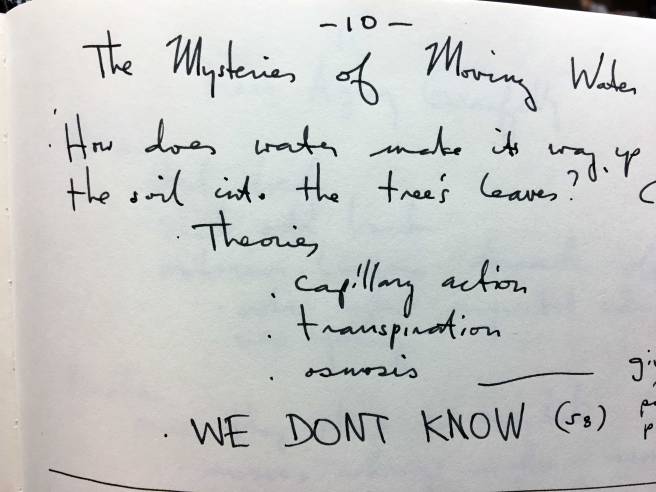 - 10 -
The Mysteries of Moving Water
· How does water make its way up
the soil into the tree's leaves?
· Theories
· capillary action
· transpiration
· osmosis
· WE DONT KNOW (58)